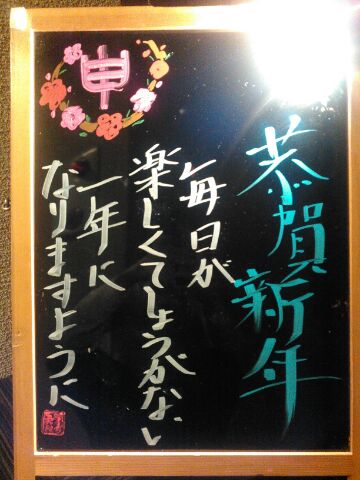 恭賀新年
毎日が
楽しくてしょうがない
一年に
なりますように
申